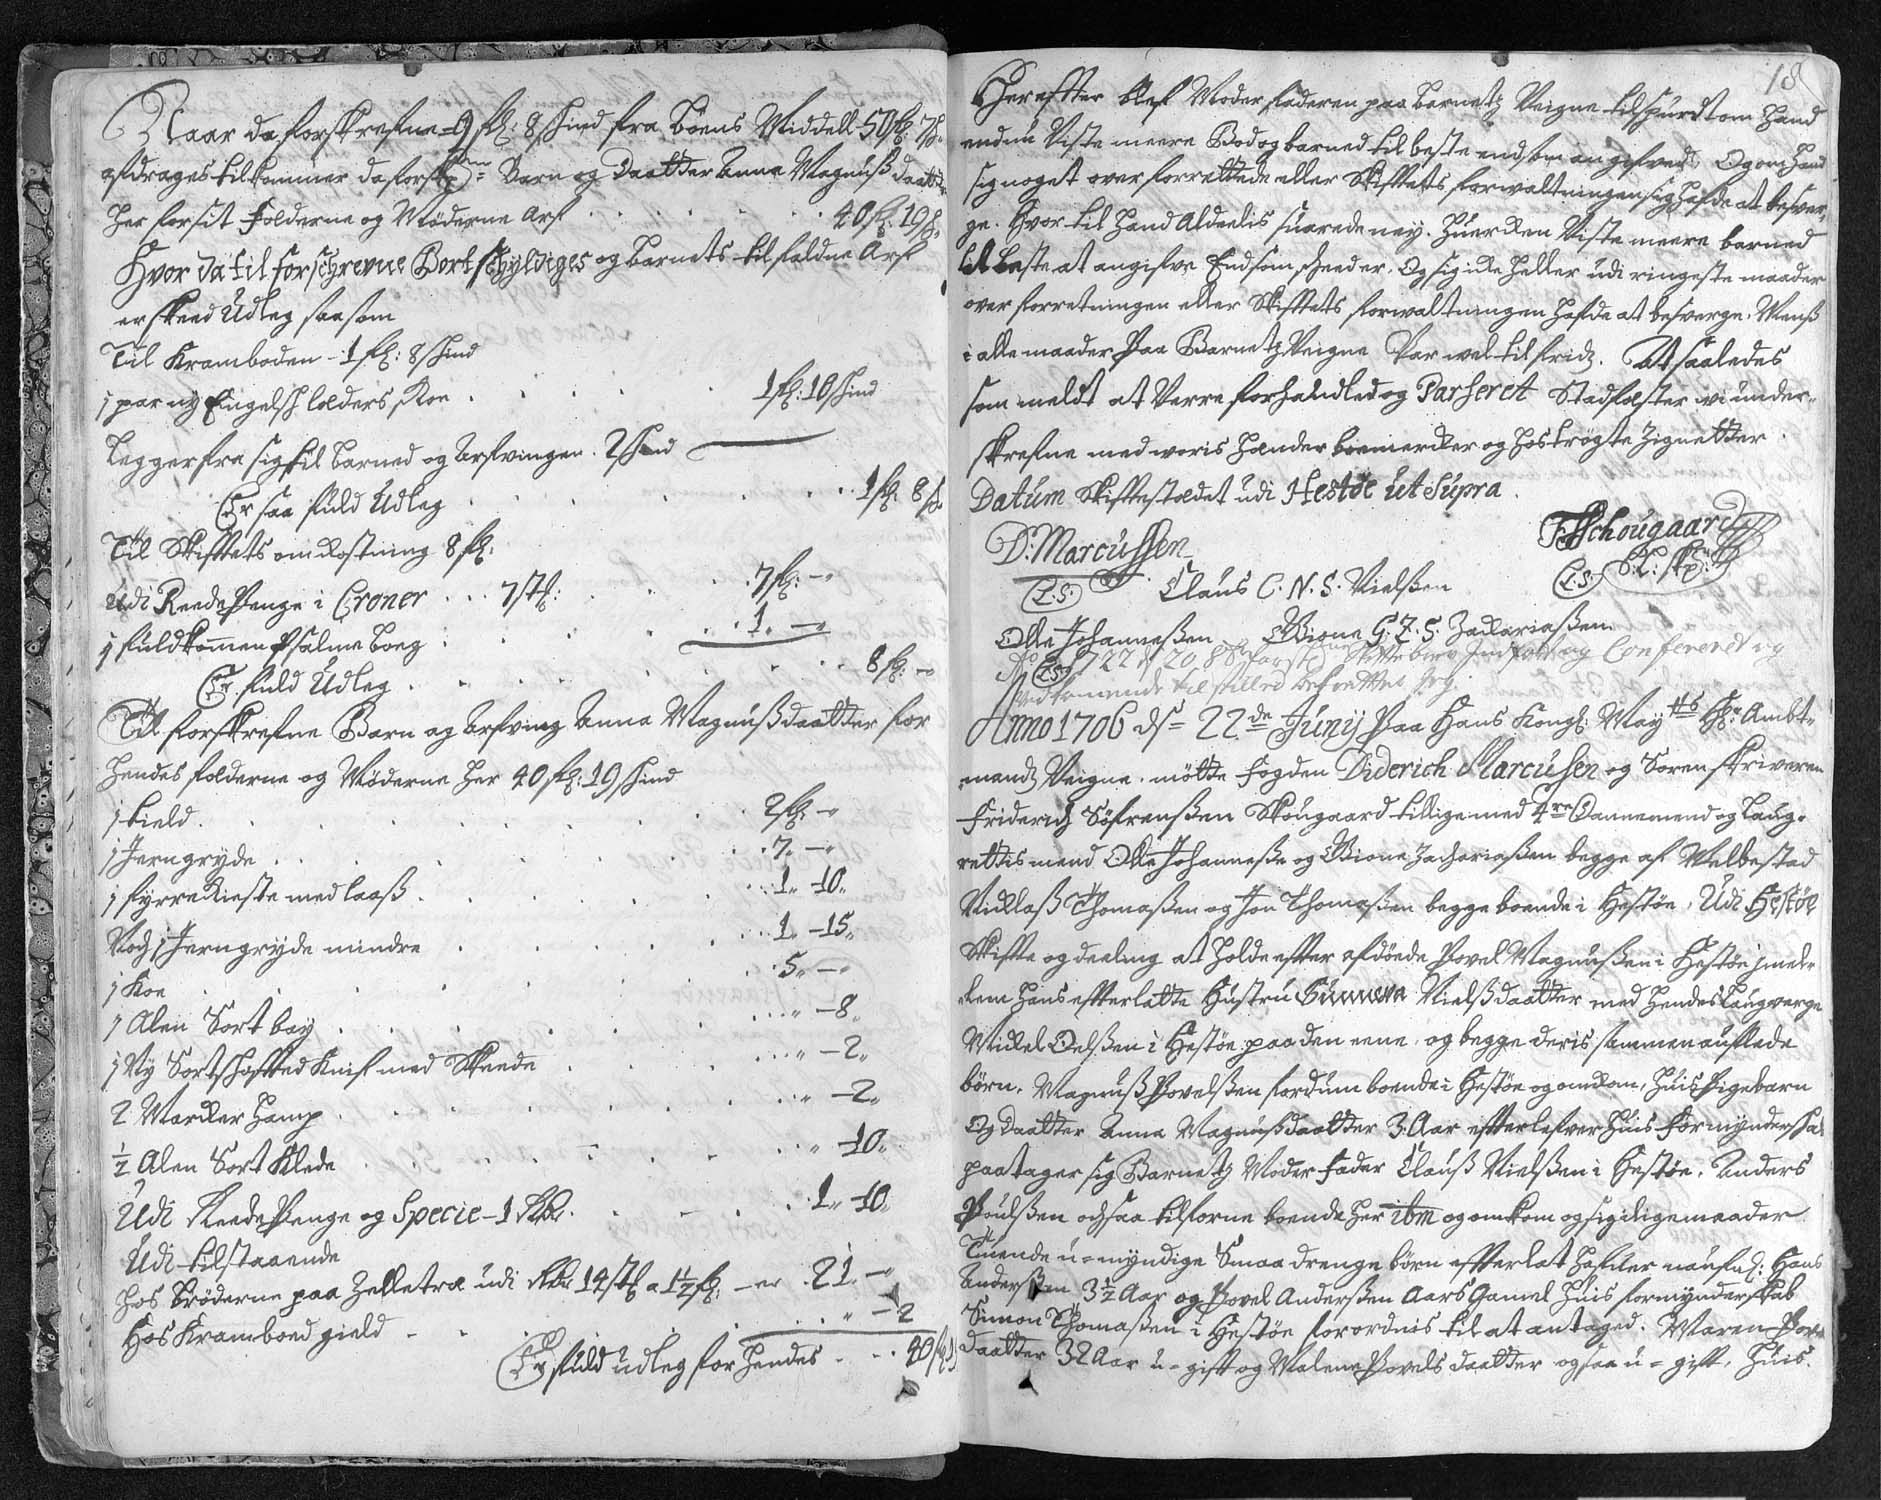 Naar da forskrefne 9 fl: 8 skind fra Boens Middell 50 fl: 7 s.
afdrages tilkommer da forskr. Barn og Daatter Anna Magnußdaatter
her for sit Folderne og Møderne Arf . . . 40 fl: 19 s.
Hvor da til forschrevne Bortschyldiges og barnets tilfaldne Arf
er skeed Udleg saasom
Til Kramboden - 1 fl: 8 skind
1 par ny Engelsch lolders Koe . . . 1 fl: 10 skind
Legger fra sig til barned og Arfvingen. 2 skind
Er saa fuld Udleg . . . 1 fl 8 s.
Til Skifftets omkostning 8 fl:
Udi Reede Penge i Croner . . . 7 stk: . . . 7 fl: - "
1 fuldkommen Psalme boeg . . . 1. - "
Er fuld Udleg . . . 8 fl: - "
Til forskrefne Barn og Arfving Anna Magnußdaatter for
hendes folderne og Møderne her 40 fl: 19 skind
1 kield . . . 2 fl: - "
1 Jerngryde . . . 7. - "
1 fyrrekieste med laaß . . . 1. 10.
Noch 1 Jerngryde mindre . . . 1. - 15.
1 Koe . . . 5. - "
1 Alen Sort bay . . . " - 8.
1 Ny Sortskafted Knif med Skeede . . . " - 2.
2 Marcker hamp . . . " - 2.
½ Alen Sort Klede . . . " 10.
Udi Reede Penge og Specie - 1 Rdr. . . . 1. 10.
Udi tilstaaende
hos Brøderne paa Zelletræ udi 14 stk a 1½ fl: - er . 21. - "
Hos Kramboed gield - . . . " - 2
Er fuld Udleg for hendes . . . 40 fl 19
18
Herefter blef Moderfaderen paa barnetz Veigne tilspurdt om hand
endnu Viste meere Bo og barned til beste end som angifvedt, Og om hand
sig noget over forrettede eller Skifftets forvaltningen sig hafde at besver-
ge. Hvor til hand Aldeelis suarede ney. Huercken Viste meere barned
til beste at angifve End som skeed er, Og sig icke heller udi ringeste maader
over forretningen eller Skifftets forwaltningen hafde at besverge. Menß
i alle maader Paa Barnetz Veigne Var wel tilfridz. At saaledes
som meldt at Verre forhandled og Passeret Stadfæster vi under-
skrefne med woris hænder boemercker og hostrøgte Zignetter.
Datum Skifftestædet udi Hestøe ut Supra.
D: Marcussen
FSSchougaard
L.S. Claus C. N. S. Nielßen L.S.
Olle Johanneßen Biøne G. Z. S. Zachariaßen.
L.S.
Anno 1706 ds= 22de Junij Paa Hans Kongl: Mayts Hr. Ambt-
mandz Veigne. mötte fogden Diderich Marcussen og Soren skriveren
Friderich Söfrenßen Skougaard tillige med 4re Dannemend og Laug-
rettismend Olle Johanneßen og Biøne Zachariaßen begge af Melbestad
Nicklaß Thomaßen og Jon Thomaßen begge boende i Hestøe, Udi Hestøe
Skiffte og deeling at holde effter afdøede Povel Magnußen i Hestøe jmel-
lem hans effterlatte Hustru Gunnera Nielßdaatter med hendes laugverge
Mickel Oelßen i Hestøe paa den eene, og begge deris sammen auflede
börn, Magnuß Povelßen fordum boende i Hestøe og omkom, huis Pigebarn
Og daatter Anna Magnußdaatter 3 Aar effterlefver huis Formynderskab
paatager sig Barnetz Moder Fader Clauß Nielßen i Hestøe. Anders
Poulßen ochsaa tilforne boende her ibm og omkom og sigeligemaader
Tuende u-myndige Smaa drenge börn effterlat hafuer naufnl: Hans
Anderßen 3½ Aar og Povel Anderßen Aars Gamel huis formynderskab
Simon Thomaßen i Hestøe forordnis til at antaged. Maren Povels
daatter 32 Aar u-gift og Malene Povels daatter ogsaa u-gift, huis.